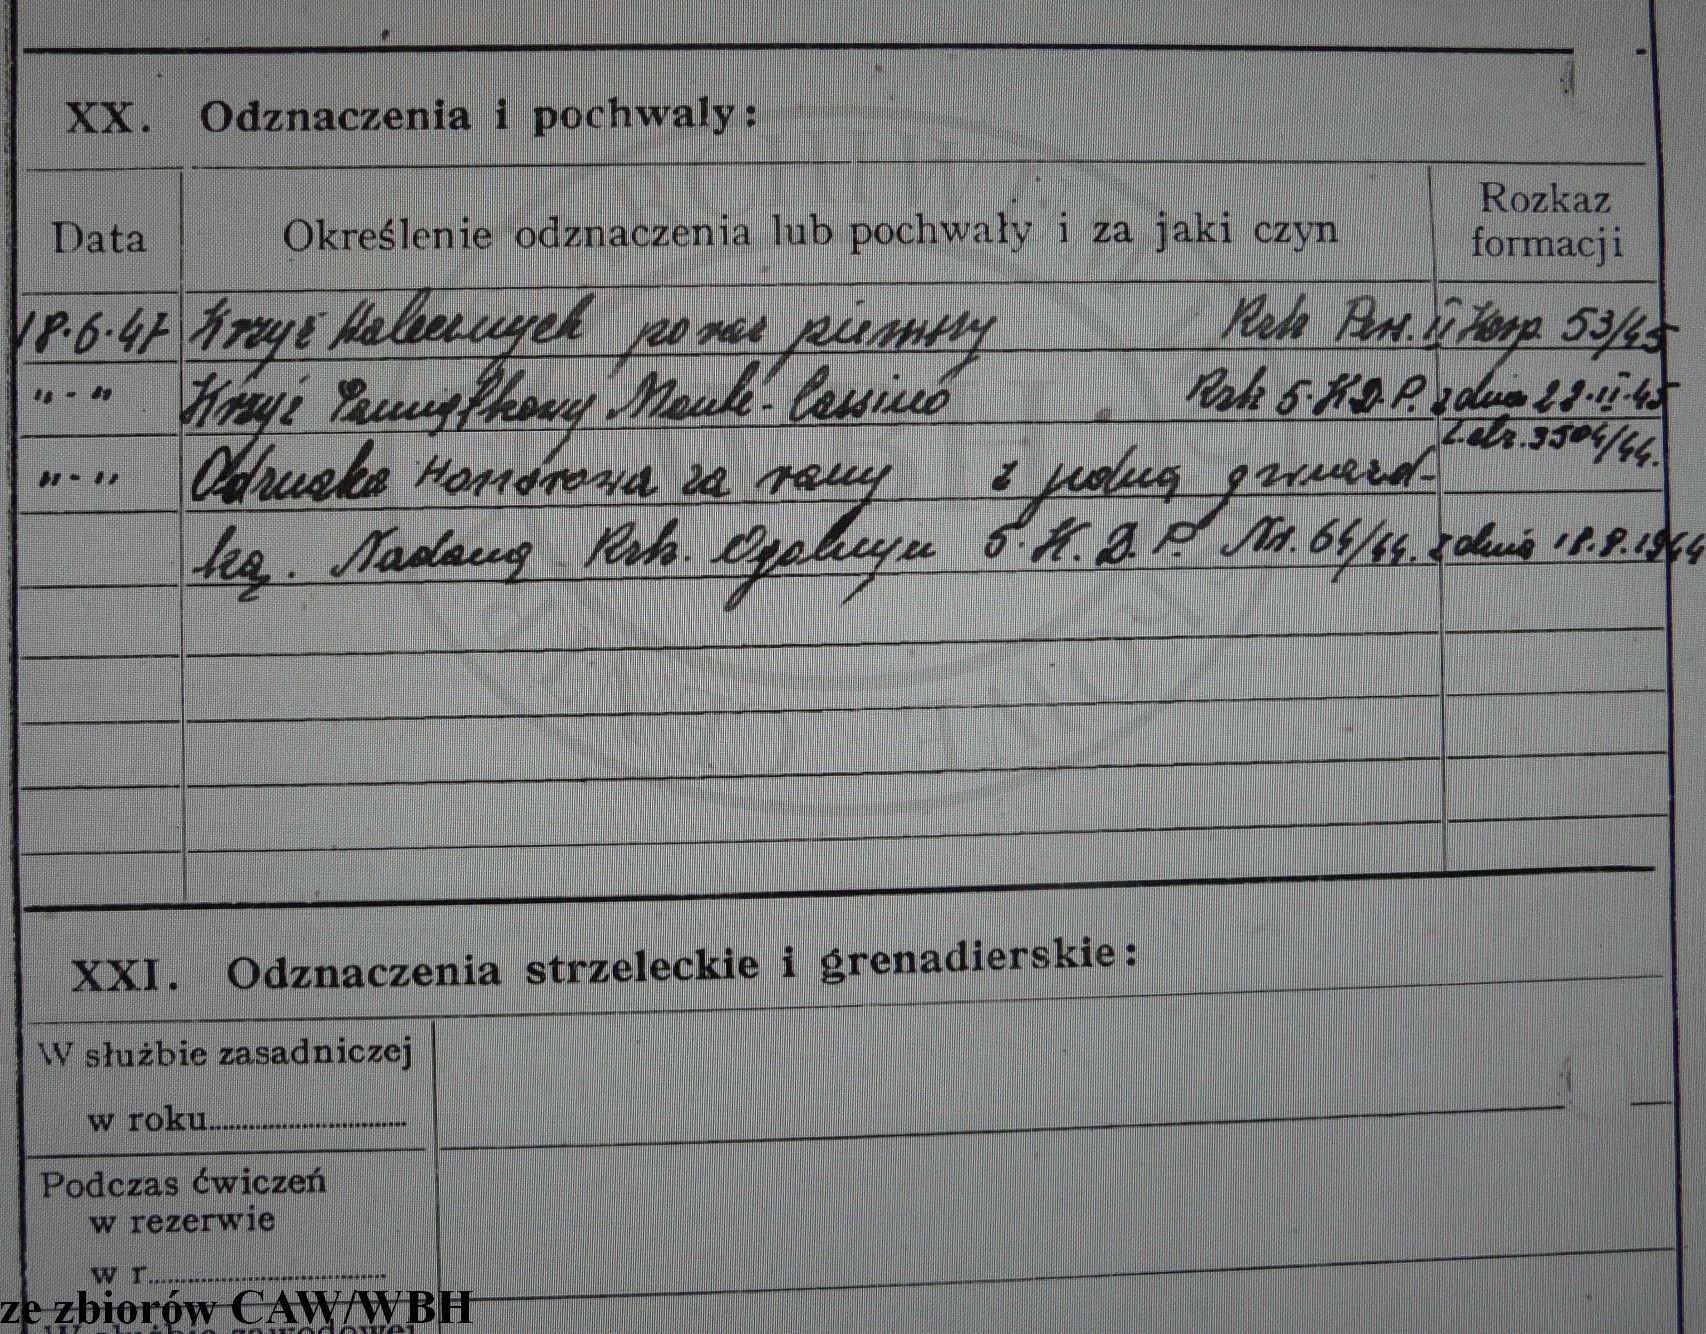 XX. Odznaczenia i pochwały:
Data Określenie odznaczenia lub pochwały i za jaki czyn Rozkaz formacji
18.6.47 Krzyż Walecznych po raz pierwszy Rzk Pers. II Korp. 53/45
"-" Krzyż Pamiątkowy Monte-Cassino Rzk 5.K.D.P. z dnia 22.II.45
L.dz.3504/44.
"-" Odznaka Honorowa za rany z jedną gwiazd-
ką. Nadaną Rzk. Ogólnym 5.K.D.P. Nr. 64/44. z dnia 18.8.1944
XXI. Odznaczenia strzeleckie i grenadierskie:
W służbie zasadniczej
w roku
Podczas ćwiczeń
w rezerwie
w r.
ze zbiorów CAW/WBH
W służbie zawodowej